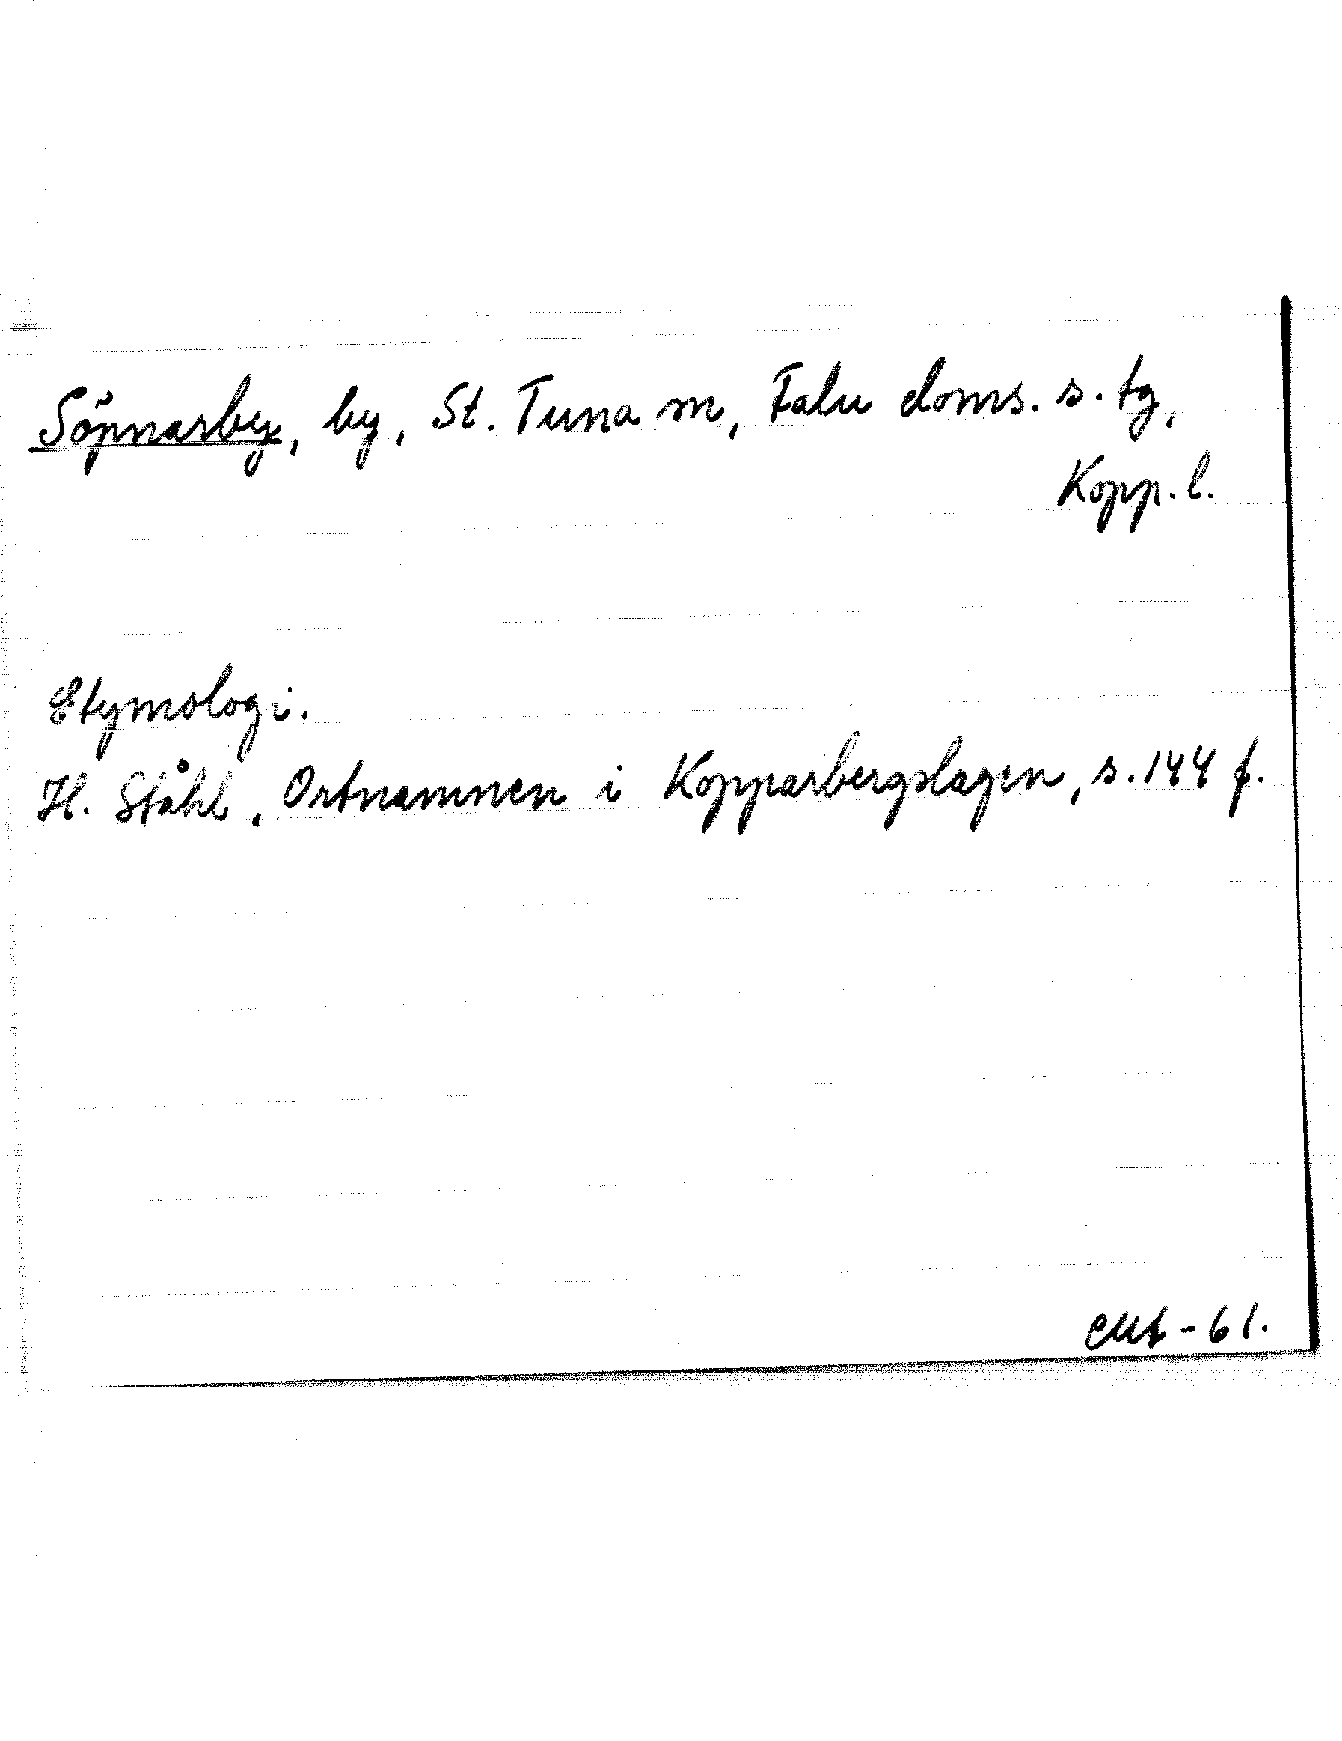 Söpnarby, by, St. Tuna sn, Falu doms. s. tg,
Kopp. l.
Etymologi.
H. Ståhl, Ortnamnen i Kopparbergslagen, s. 144 f.
-61.